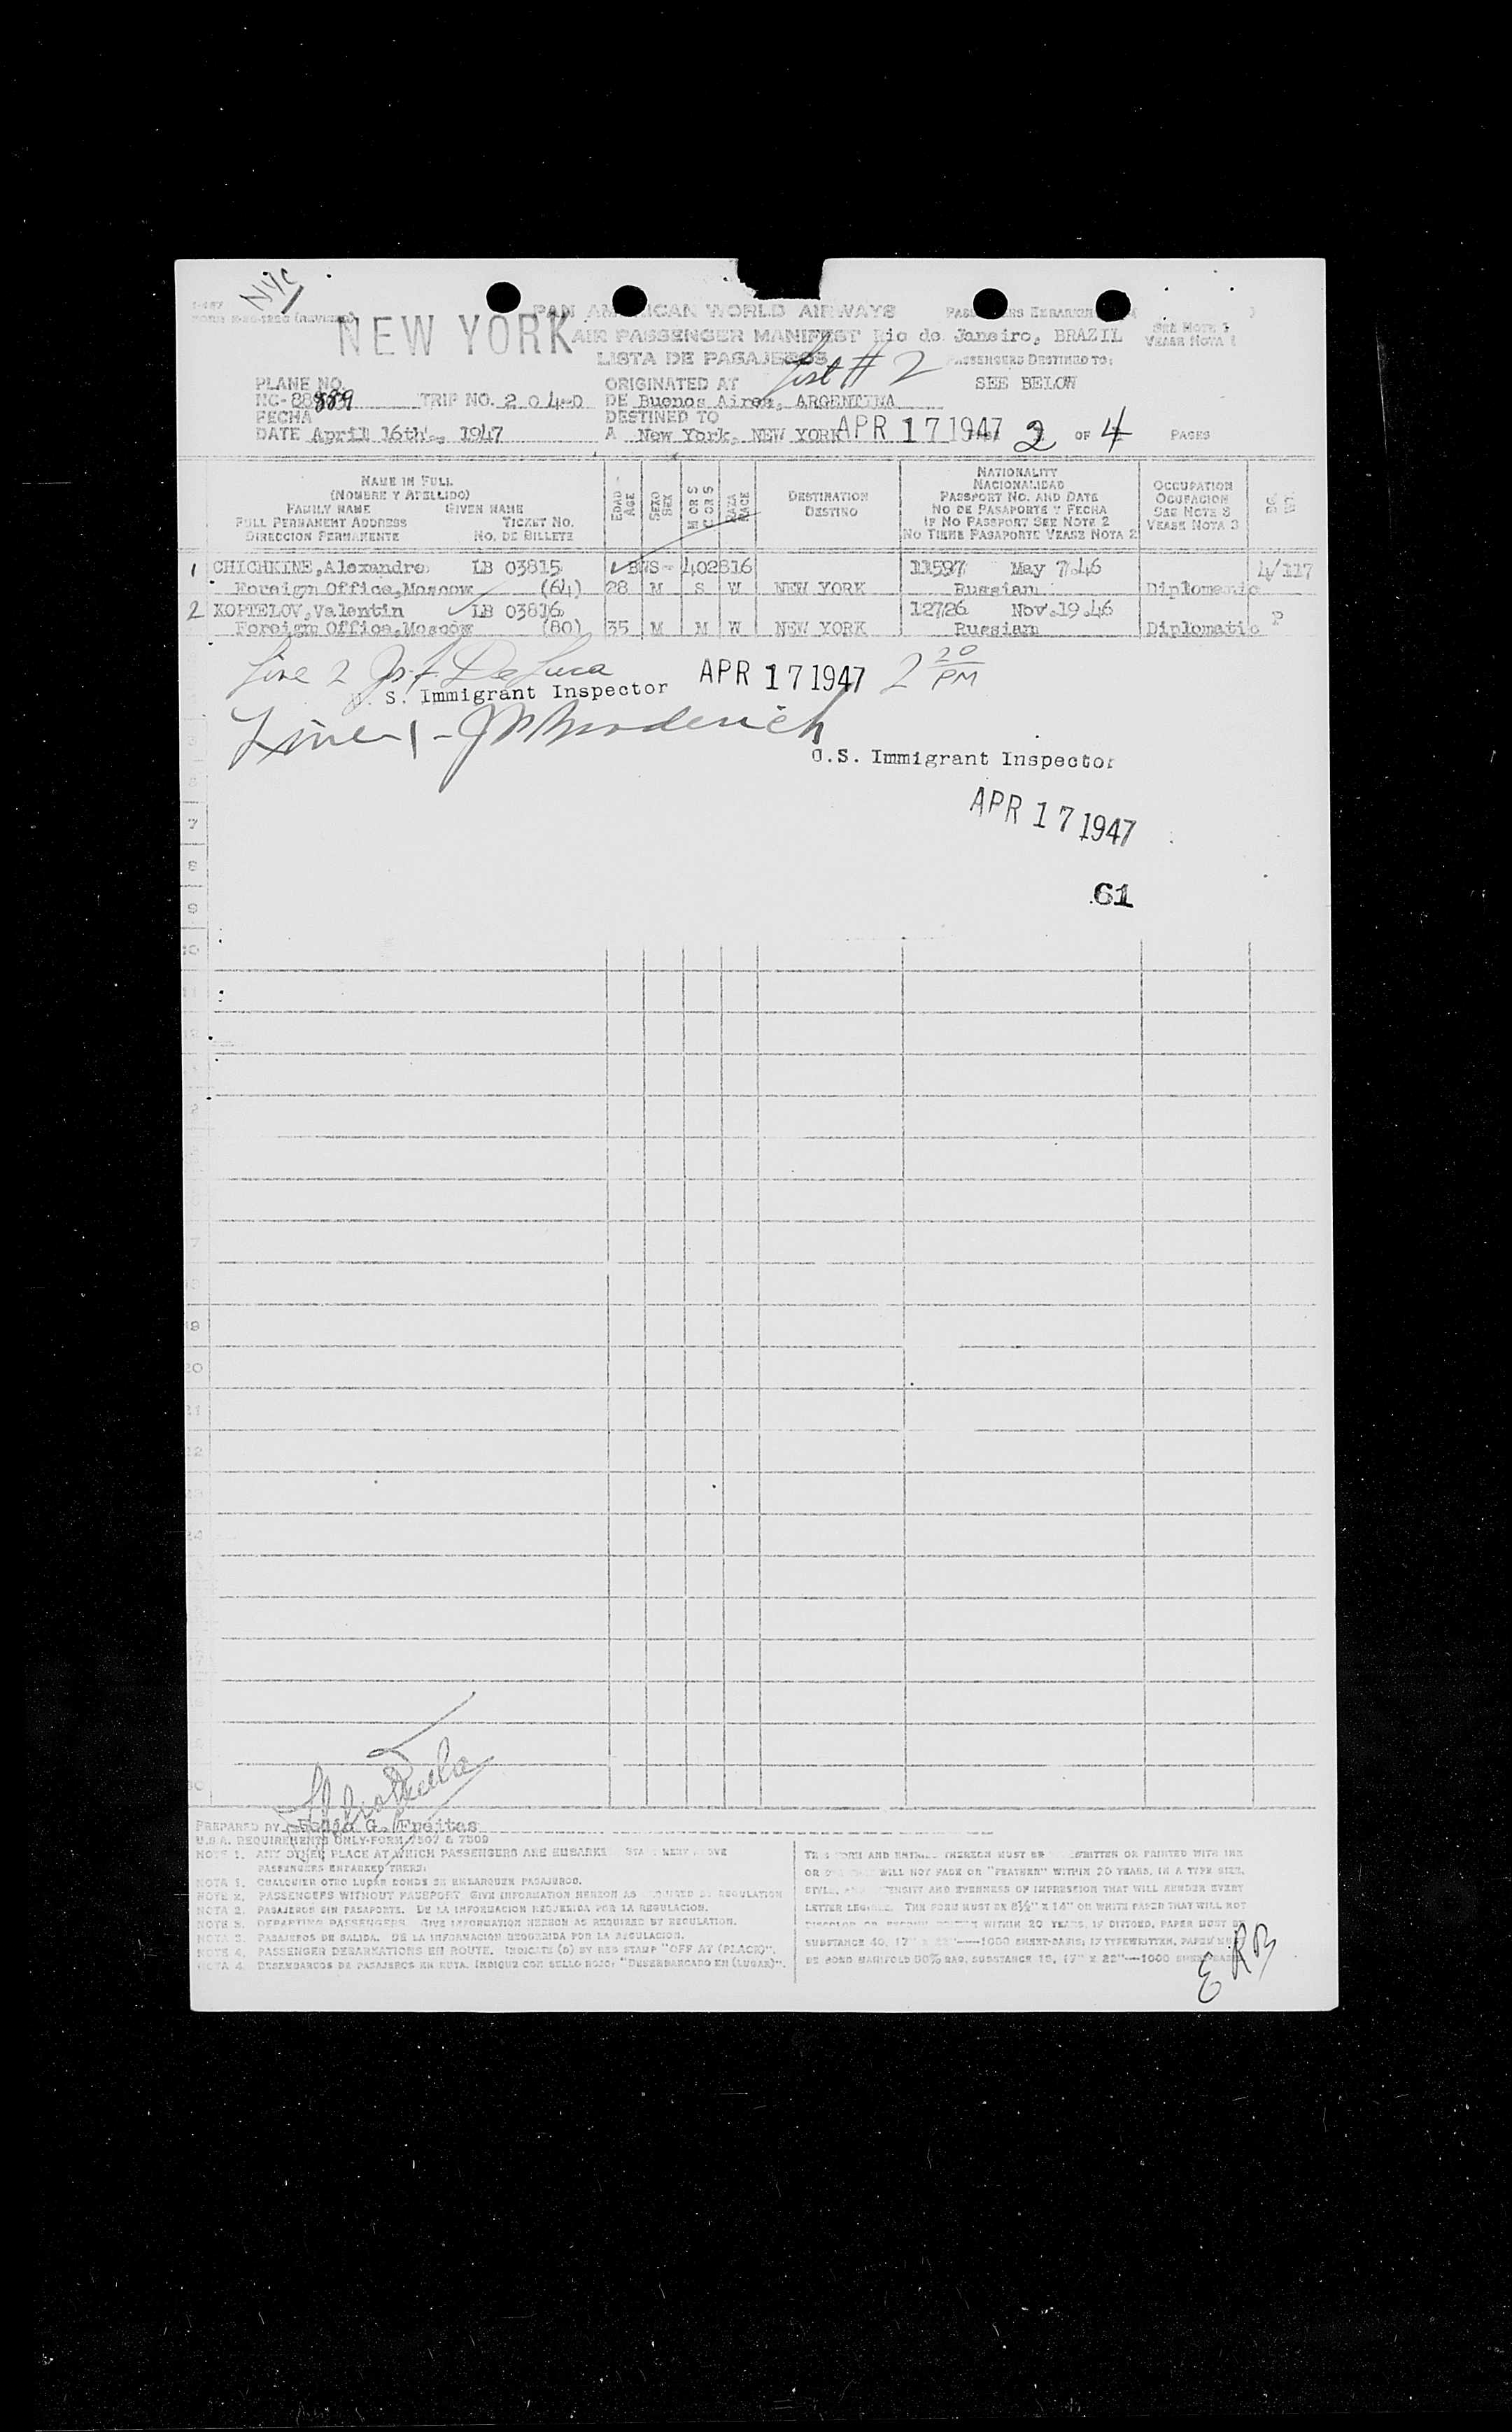 NYC
NEW YORK
PAN AMERICAN WORLD AIRWAYS
AIR PASSENGER MANIFEST Rio de Janeiro, BRAZIL
SEE NOTE 1
VEASE NOTA 1
LISTA DE PASAJEROS
List # 2
PASSENGERS DESTINED TO:
SEE BELOW
PLANE NO.
NC-88889 TRIP NO. 2 0 4-0
ORIGINATED AT
DE Buenos Aires, ARGENTINA
FECHA
DATE April 16th., 1947
DESTINED TO
A New York, NEW YORK
APR 17 1947
2 OF 4 PAGES
NAME IN FULL
(NOMBRE Y APELLIDO)
FAMILY NAME GIVEN NAME
FULL PERMANENT ADDRESS TICKET NO.
DIRECCION PERMANENTE NO. DE BILLETE
EDAD
AGE
SEXO
SEX
M OR S
C OR S
RAZA
RACE
DESTINATION
DESTINO
NATIONALITY
NACIONALIDAD
PASSPORT NO. AND DATE
NO DE PASAPORTE Y FECHA
IF NO PASSPORT SEE NOTE 2
NO TIENE PASAPORTE VEASE NOTA 2
OCCUPATION
OCUPACION
SEE NOTE 3
VEASE NOTA 3
1 CHICHKINE,Alexandre LB 03815 BWS - 402816 11597 May 7.46 4/117
Foreign Office,Moscow (64) 28 M S W NEW YORK Russian Diplomatic
2 KOPTELOV,Valentin LB 03816 12726 Nov.19.46
Foreign Office,Moscow (80) 35 M M W NEW YORK Russian Diplomatic P
Line 2 Jos. F. DeLuca APR 17 1947 2 20 PM
U. S. Immigrant Inspector
Line 1 - J Broderick
U.S. Immigrant Inspector
APR 17 1947
7
8
61
9
10
11
12
19
20
21
PREPARED BY G. Freitas
U.S.A. REQUIREMENTS ONLY-FORM 7507 & 7509
NOTE 1. ANY OTHER PLACE AT WHICH PASSENGERS ARE EMBARKED
PASSENGERS EMBARKED THERE:
NOTA 1. CUALQUIER OTRO LUGAR DONDE SE EMBARQUEN PASAJEROS.
NOTE 2. PASSENGERS WITHOUT PASSPORT GIVE INFORMATION HEREON AS REQUIRED BY REGULATION
NOTA 2. PASAJEROS SIN PASAPORTE. DE LA INFORMACION REQUERIDA POR LA REGULACION.
NOTE 3. DEPARTING PASSENGERS. GIVE INFORMATION HEREON AS REQUIRED BY REGULATION.
NOTA 3. PASAJEROS DE SALIDA. DE LA INFORMACION REQUERIDA POR LA REGULACION.
NOTE 4. PASSENGER DEBARKATIONS EN ROUTE. INDICATE (D) BY RED STAMP "OFF AT (PLACE)".
NOTA 4. DESEMBARCOS DE PASAJEROS EN RUTA. INDIQUE CON SELLO ROJO: "DESEMBARCADO EN (LUGAR)".
THIS FORM AND ENTRIES THEREON MUST BE WRITTEN OR PRINTED WITH INK
OR WILL NOT FADE OR "FEATHER" WITHIN 20 YEARS, IN A TYPE SIZE,
STYLE, DENSITY AND EVENNESS OF IMPRESSION THAT WILL RENDER EVERY
LETTER LEGIBLE. THE FORM MUST BE 8½" X 14" ON WHITE PAPER THAT WILL NOT
DISCOLOR OR BECOME BRITTLE WITHIN 20 YEARS, IF DITTOED, PAPER MUST BE
SUBSTANCE 40, 17" X 22"—1000 SHEET-BASIS; IF TYPEWRITTEN, PAPER MUST
BE BOND MANIFOLD 50% RAG, SUBSTANCE 16, 17" X 22"—1000
ERB